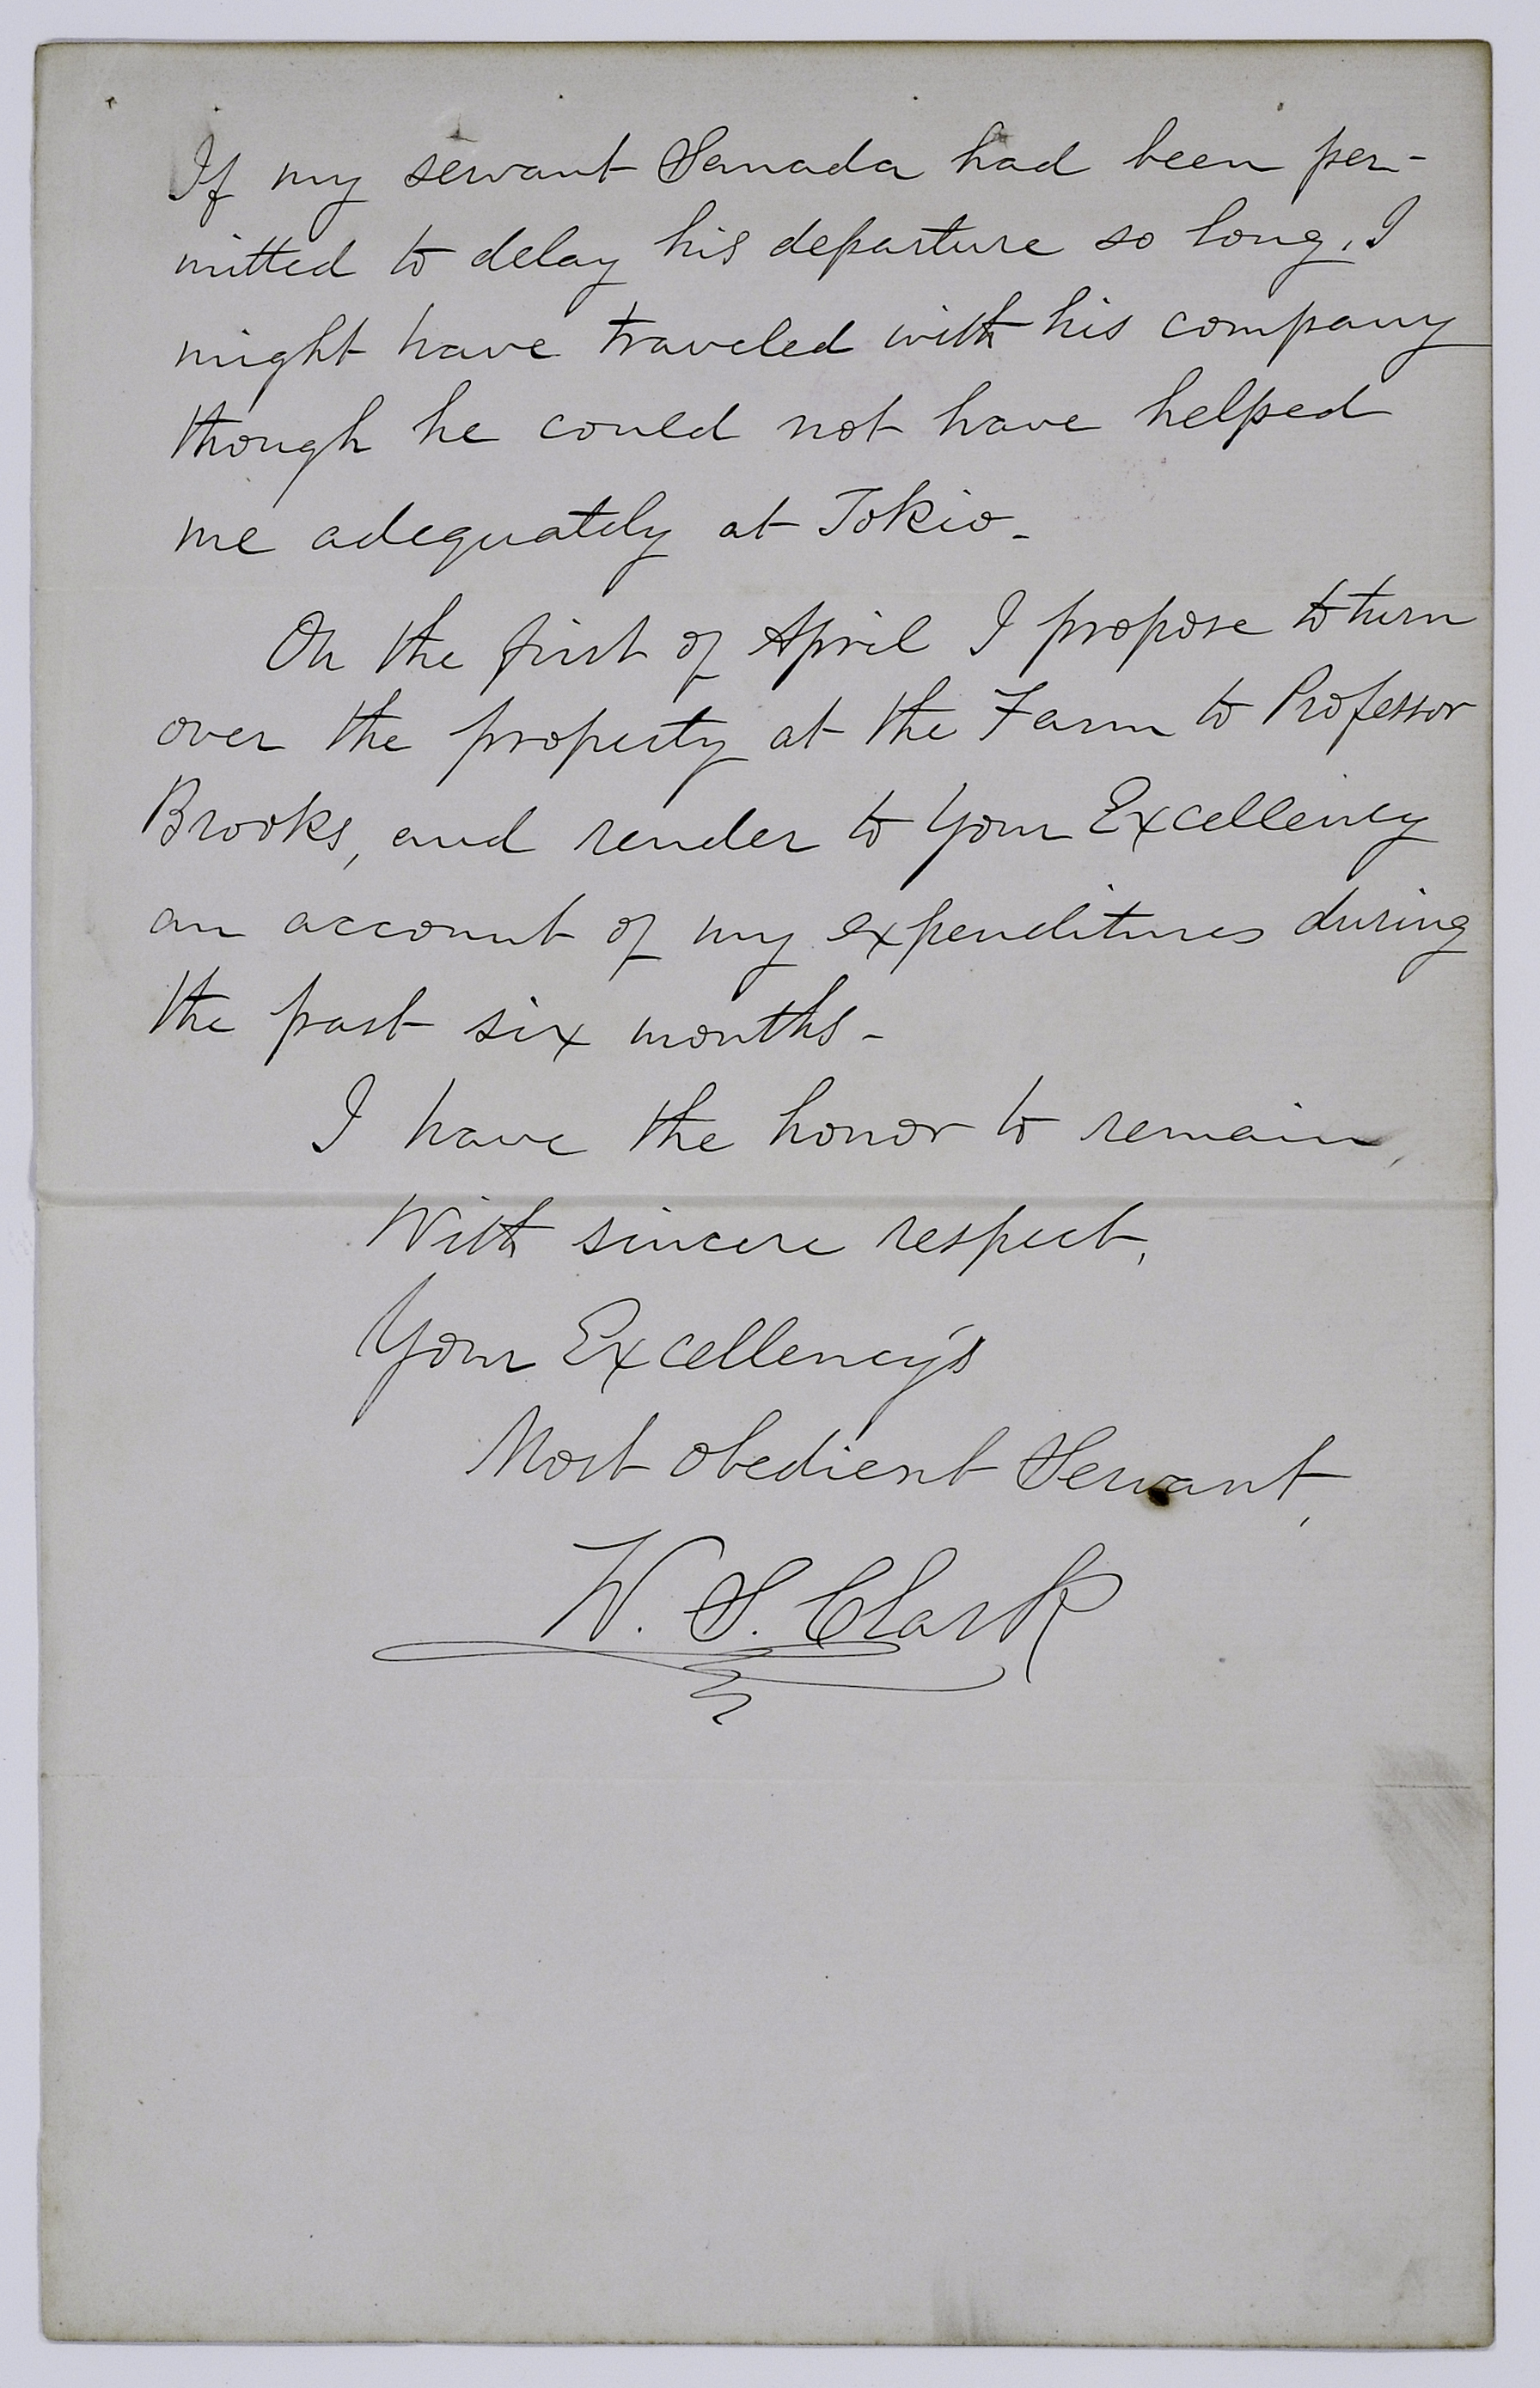 If my servant Sanada had been per-
mitted to delay his departure so long, I
might have traveled with his company
though he could not have helped
me adequately at Tokio-
On the first of April I propose to turn
over the property at the Farm to Professor
Brooks, and render to Your Excellency
an account of my expenditures during
the past six months-
I have the honor to remain,
With sincere respect,
Your Excellency's
Most obedient Servant,
W. S. Clark